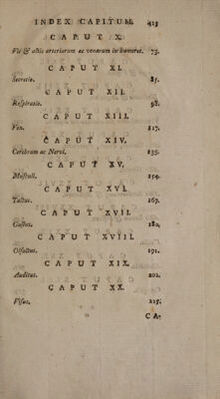 INDEX CAPITUM. 425
CAPUT X.
Vis & actio arteriarum ac venarum in humores. 75.
CAPUT XI.
Secretio. 85.
CAPUT XII.
Respiratio. 98.
CAPUT XIII.
Vox. 127.
CAPUT XIV.
Cerebrum ac Nervi. 135.
CAPUT XV.
Musculi. 150.
CAPUT XVI.
Tactus. 167.
CAPUT XVII.
Gustus. 180.
CAPUT XVIII.
Olfactus. 191.
CAPUT XIX.
Auditus. 202.
CAPUT XX.
Visus. 225.
CA-